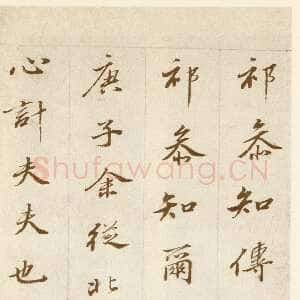 祁忝知傳
祁忝知爾
庚子余從北
心計夫夫也
Shufawang.CN